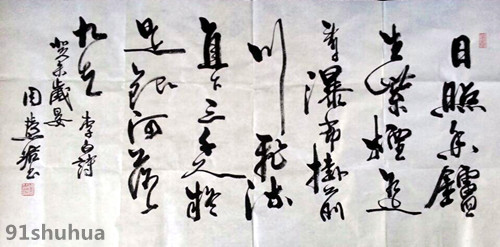 日照香鑪
生紫煙遥
看瀑布掛前
川飛流
直下三千尺疑
是銀河落
九天 李白詩
癸未歲晏
周慧珺书
91shuhua